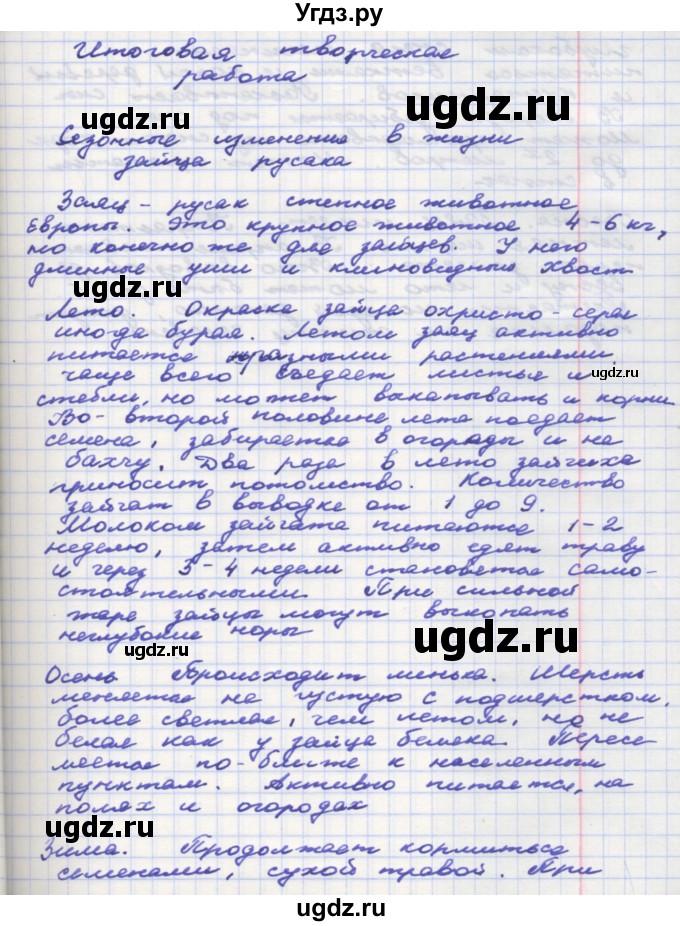 Угдз.ру
Итоговая творческая
работа
Сезонные изменения в жизни
зайца русака
Заяц - русак степное животное
Европы. Это крупное животное 4-6 кг,
но конечно же для зайцев. У него
длинные уши и клиновидный хвост
Лето. Окраска зайца охристо-серая
иногда бурая. Летом заяц активно
питается разными растениями,
чаще всего съедает листья и
стебли, но может выкапывать и корни
Во-второй половине лета поедает
семена, забирается в огороды и на
бахчу. Два раза в лето зайчиха
приносит потомство. Количество
зайчат в выводке от 1 до 9.
Молоком зайчата питаются 1-2
неделю, затем активно едят траву
и через 3-4 недели становятся само-
стоятельными. При сильной
жаре зайцы могут выкопать
неглубокие норы
Осень Происходит линька. Шерсть
меняется на густую с подшерстком,
более светлая, чем летом, но не
белая как у зайца беляка. Пересе
ляется по-ближе к населенным
пунктам. Активно питается, на
полях и огородах
Зима. Продолжает кормиться
семенами, сухой травой. При
ugdz.ru
ugdz.ru
ugdz.ru
ugdz.ru
ugdz.ru
ugdz.ru
ugdz.ru
ugdz.ru
ugdz.ru
ugdz.ru
ugdz.ru